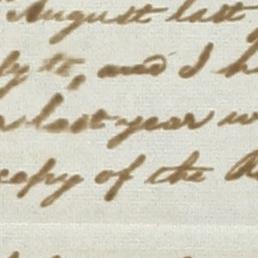 August last
and I h
last year w
copy of the R